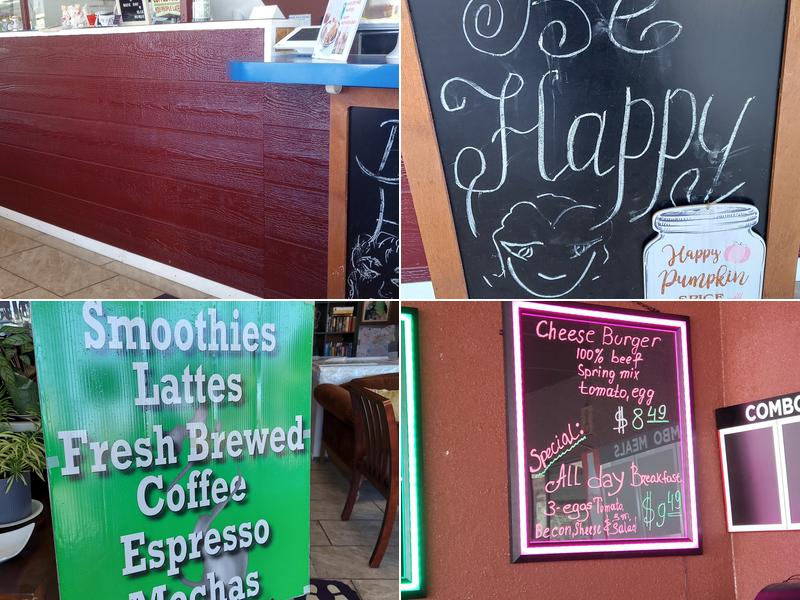 Be
Happy
Happy
Pumpkin
SPICE
Smoothies
Lattes
Fresh Brewed
Coffee
Espresso
Mochas
Cheese Burger
100% beef
Spring mix
tomato, egg
$8.49
Special:
All day Breakfast
3-eggs Tomato
S.m.
Becon, Sheese & Salad
$9.49
COMBO
MBO MEALS